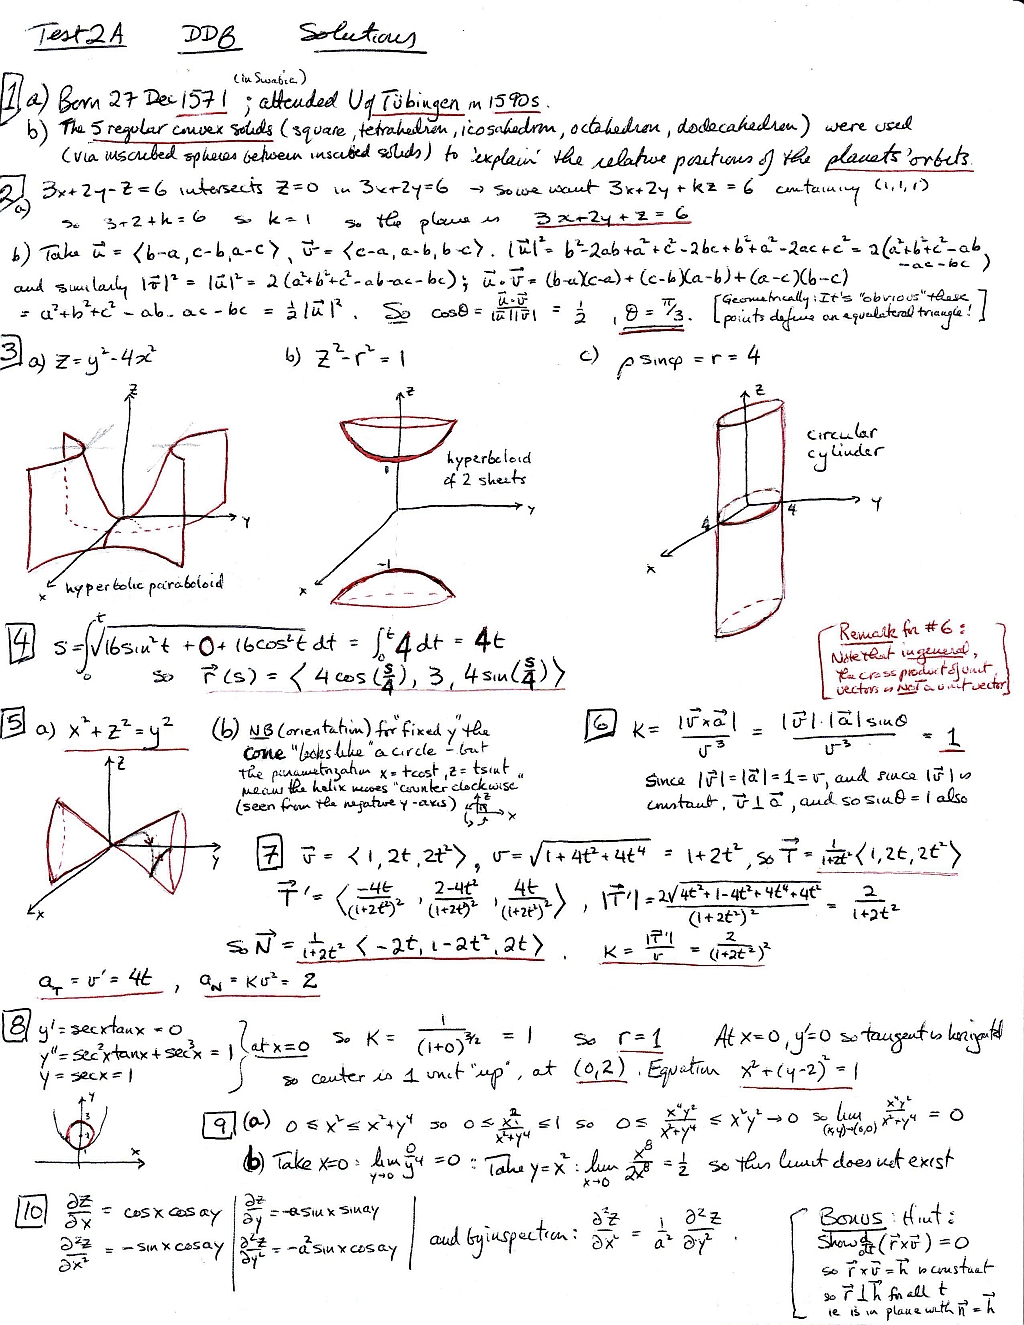 Test 2A DDB Solutions
(in Swabia)
1 a) Born 27 Dec 1571 ; attended U of Tübingen in 1590s.
b) The 5 regular convex solids (square, tetrahedron, icosahedron, octahedron, dodecahedron) were used
(via inscribed spheres between inscribed solids) to 'explain' the relative positions of the planets' orbits.
2 a) 3x+2y-z=6 intersects z=0 in 3x+2y=6 → so we want 3x+2y+kz=6 containing (1,1,1)
so 3+2+k=6 so k=1 so the plane is 3x+2y+z=6
b) Take u⃗ = ⟨b-a, c-b, a-c⟩, v⃗ = ⟨c-a, a-b, b-c⟩. |u⃗|² = b²-2ab+a²+c²-2bc+b²+a²-2ac+c² = 2(a²+b²+c²-ab
-ac-bc)
and similarly |v⃗|² = |u⃗|² = 2(a²+b²+c²-ab-ac-bc); u⃗·v⃗ = (b-a)(c-a)+(c-b)(a-b)+(a-c)(b-c)
= a²+b²+c²-ab-ac-bc = ½|u⃗|². So cosθ = u⃗·v⃗/|u⃗||v⃗| = ½, θ = π/3. [Geometrically: It's "obvious" these
points define an equilateral triangle!]
3 a) z=y²-4x² b) z²-r²=1 c) ρ sinφ = r = 4
z
y
x
hyperbolic paraboloid
z
1
hyperboloid
of 2 sheets
y
x
-1
z
circular
cylinder
4
4
y
x
4 s = ∫₀ᵗ √(16sin²t + 0 + 16cos²t) dt = ∫₀ᵗ 4 dt = 4t
so r⃗(s) = ⟨4cos(s/4), 3, 4sin(s/4)⟩
Remark for #6:
Note that in general,
the cross product of unit
vectors is NOT a unit vector
5 a) x²+z²=y²
z
y
x
(b) NB (orientation) for "fixed y" the
cone "looks like" a circle - but
the parametrization x=tcost, z=tsint
means the helix moves "counter clockwise"
(seen from the negative y-axis)
z
x
6 K = |v⃗×a⃗|/v³ = |v⃗|·|a⃗| sinθ/v³ = 1
Since |v⃗|=|a⃗|=1=v, and since |v⃗| is
constant, v⃗⊥a⃗, and so sinθ=1 also
7 v⃗ = ⟨1, 2t, 2t²⟩, v=√(1+4t²+4t⁴) = 1+2t², so T⃗ = 1/(1+2t²) ⟨1, 2t, 2t²⟩
T⃗' = ⟨-4t/(1+2t²)², (2-4t²)/(1+2t²)², 4t/(1+2t²)²⟩, |T⃗'| = 2√(4t²+1-4t²+4t⁴+4t²)/(1+2t²)² = 2/(1+2t²)
so N⃗ = 1/(1+2t²) ⟨-2t, 1-2t², 2t⟩. K = |T⃗'|/v = 2/(1+2t²)²
a_T = v' = 4t, a_N = Kv² = 2
8 y'=secxtanx=0
y''=sec²xtanx+sec³x=1 } at x=0
y=secx=1
so K = 1/(1+0)^(3/2) = 1 so r=1 At x=0, y'=0 so tangent is horizontal
so center is 1 unit "up", at (0,2). Equation x²+(y-2)²=1
y
3
1
x
9 (a) 0≤x²≤x²+y⁴ so 0≤x²/(x²+y⁴)≤1 so 0≤x⁴y²/(x²+y⁴)≤x²y²→0 so lim (x,y)→(0,0) x⁴y²/(x²+y⁴) = 0
(b) Take x=0: lim y→0 0/y⁴ = 0 :: Take y=x²: lim x→0 x⁸/2x⁸ = ½ so this limit does not exist
10 ∂z/∂x = cosx cosay | ∂z/∂y = -a sinx sinay
∂²z/∂x² = -sinx cosay | ∂²z/∂y² = -a² sinx cosay
and by inspection: ∂²z/∂x² = 1/a² ∂²z/∂y².
Bonus: Hint:
Show d/dt(r⃗×v⃗)=0
so r⃗×v⃗=h⃗ is constant
so r⃗⊥h⃗ for all t
ie is in plane with n⃗=h⃗